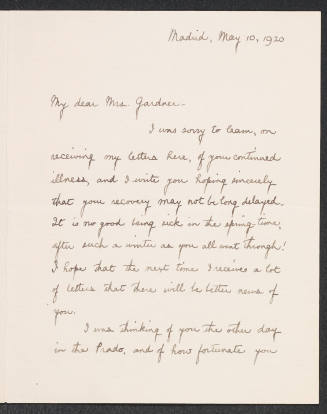 Madrid, May 10, 1920
My dear Mrs. Gardner-
I was sorry to learn, on
receiving my letters here, of your continued
illness, and I write you hoping sincerely
that your recovery may not be long delayed.
It is no good being sick in the spring time,
after such a winter as you all went through!
I hope that the next time I receive a lot
of letters that there will be better news of
you.
I was thinking of you the other day
in the Prado, and of how fortunate you